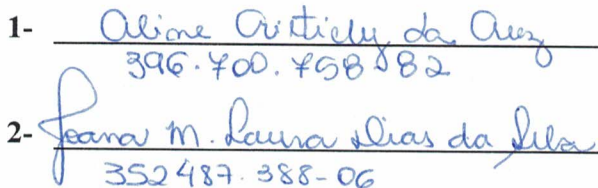 1- Aline Cristiely da Cruz
396.700.758-82
2- Joana M. Laura Dias da Silva
352487.388-06